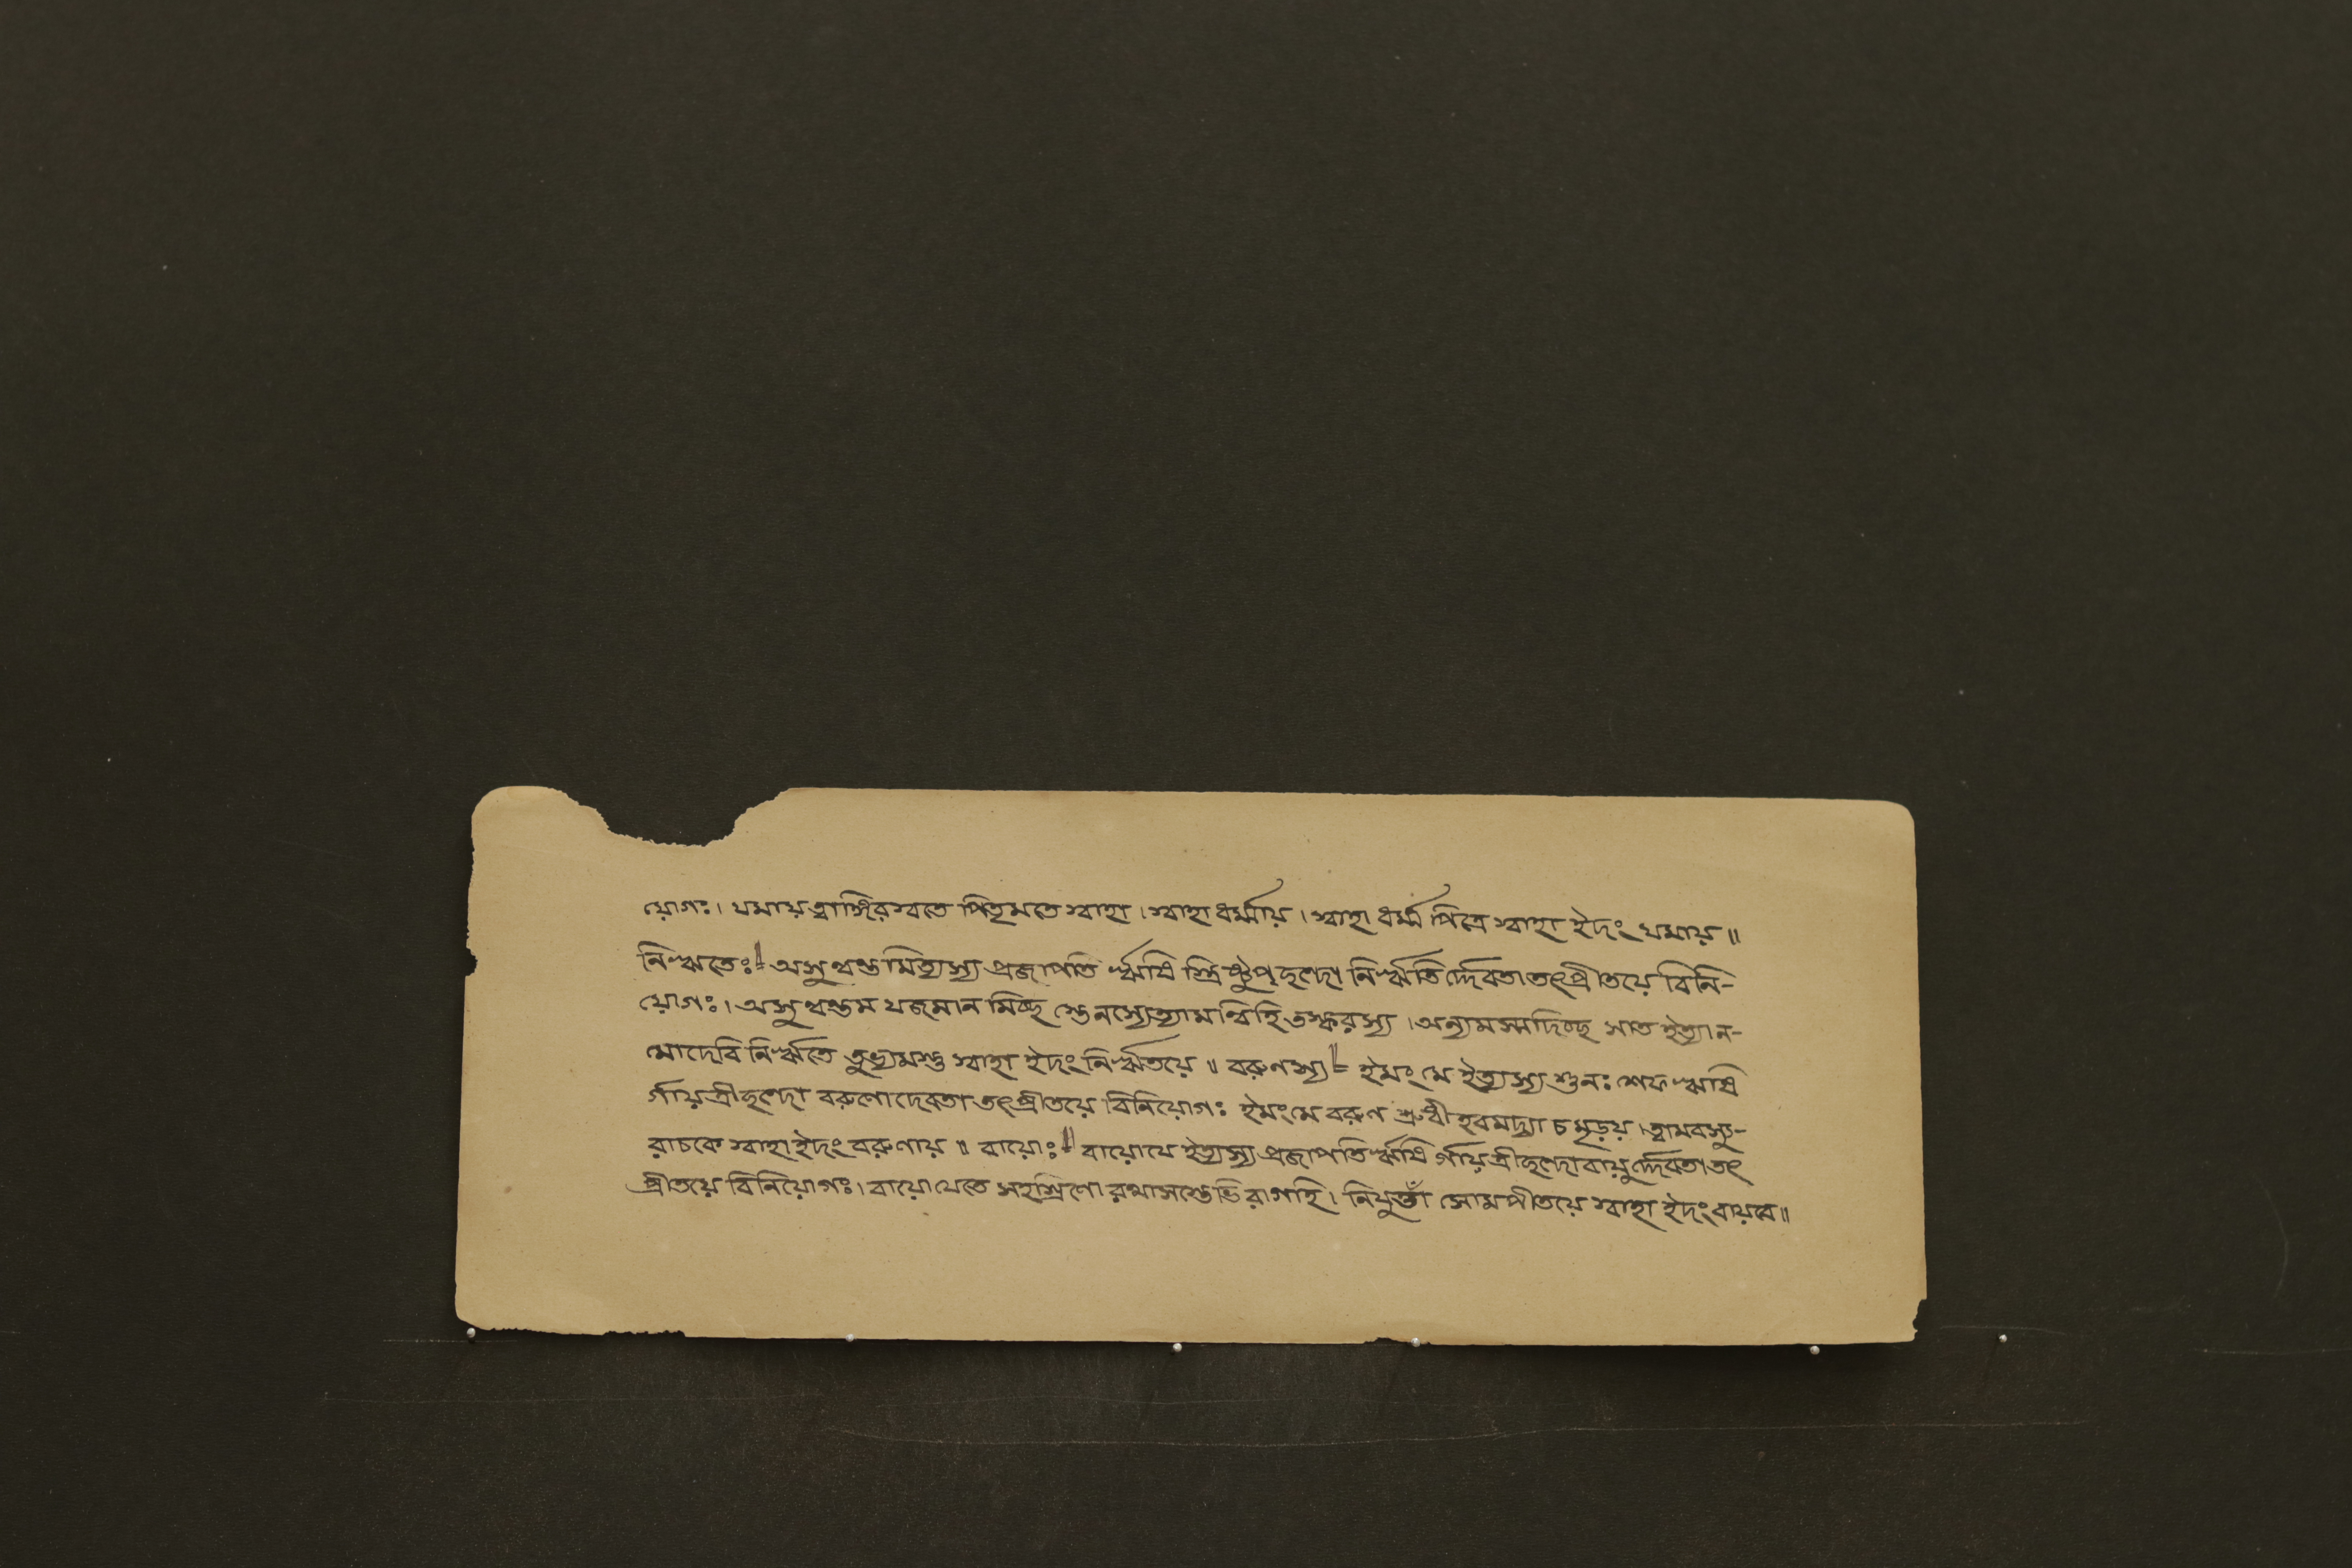 যোগঃ। যমায় ত্বাঙ্গিরস্বতে পিতৃমতে স্বাহা। স্বাহা ধর্ম্মায়। স্বাহা ধর্ম্ম পিত্রে স্বাহা ইদং যমায়॥
নিঋতেঃ॥ অসুন্বন্তমিত্যস্য প্রজাপতি র্ঋষি স্ত্রিষ্টুপ্ছন্দো নির্ঋতির্দ্দেবতা তৎপ্রীতয়ে বিনি-
য়োগঃ। অসুন্বন্তম যজমান মিচ্ছ স্তেনস্যেত্যামন্বিহি তস্করস্য। অন্যমস্মদিচ্ছ সাত ইত্যান-
মোদেবি নির্ঋতে তুভ্যমস্তু স্বাহা ইদং নির্ঋতয়ে॥ বরুণস্য॥ ইমং মে ইত্যস্য শুনঃ শেফ ঋষি
র্গায়ত্রীছন্দো বরুণোদেবতা তৎপ্রীতয়ে বিনিয়োগঃ ইমংমে বরুণ শ্রুধী হবমদ্যা চ মৃড়য়। ত্বামবস্যু-
রাচকে স্বাহা ইদং বরুণায়॥ বায়োঃ॥ বায়োযে ইত্যস্য প্রজাপতির্ঋষি র্গায়ত্রীছন্দোবায়ুর্দ্দেবতা তৎ
প্রীতয়ে বিনিয়োগঃ। বায়োযেতে সহস্রিণো রথাসস্তেভি রাগহি। নিযুত্তাঁ সোমপীতয়ে স্বাহা ইদং বায়বে॥